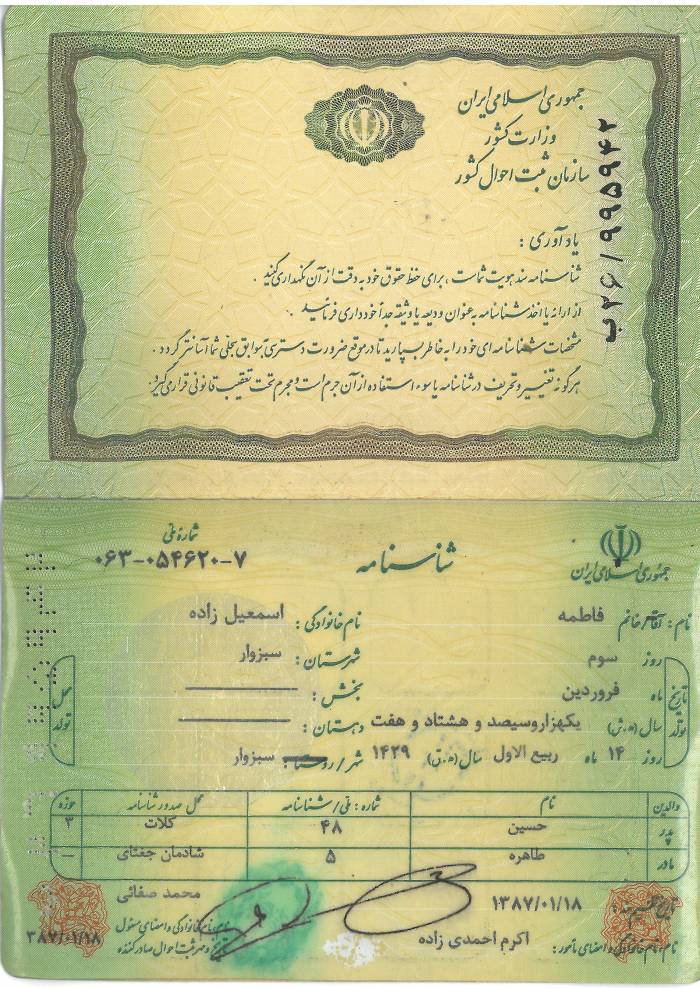 جمهوری اسلامی ایران
وزارت کشور
سازمان ثبت احوال کشور
ب۲۶/۹۹۵۹۴۲
یادآوری :
شناسنامه سند هویت شماست ، برای حفظ حقوق خود به دقت از آن نگهداری کنید .
از ارائه یا اخذ شناسنامه به عنوان ودیعه یا وثیقه جداً خودداری فرمائید .
مشخصات شناسنامه ای خود را به خاطر بسپارید تا در موقع ضرورت دسترسی به سوابق سجلی شما آسانتر گردد .
هرگونه تغییر و تحریف در شناسنامه یا سوء استفاده از آن جرم است و مجرم تحت تعقیب قانونی قرار می گیرد .
جمهوری اسلامی ایران
شناسنامه
شماره ملی
۰۶۳-۰۵۴۶۲۰-۷
نام : آقا/خانم فاطمه نام خانوادگی : اسمعیل زاده
تاریخ تولد
روز سوم شهرستان : سبزوار
ماه فروردین بخش :
سال (ه.ش) یکهزاروسیصد و هشتاد و هفت دهستان :
روز ۱۴ ماه ربیع الاول سال (ه.ق) ۱۴۲۹ شهر/روستا : سبزوار
محل تولد
والدین نام شماره : ملی/شناسنامه محل صدور شناسنامه حوزه
پدر حسین ۴۸ کلات ۳
مادر طاهره ۵ شادمان جغتای –
تاریخ تنظیم سند : ۱۳۸۷/۰۱/۱۸ محمد صفائی
نام ، نام خانوادگی و امضای مأمور : اکرم احمدی زاده
نام ، نام خانوادگی و امضای مسئول
تاریخ و مهر ثبت احوال صادرکننده
۳۸۷/۰۱/۱۸